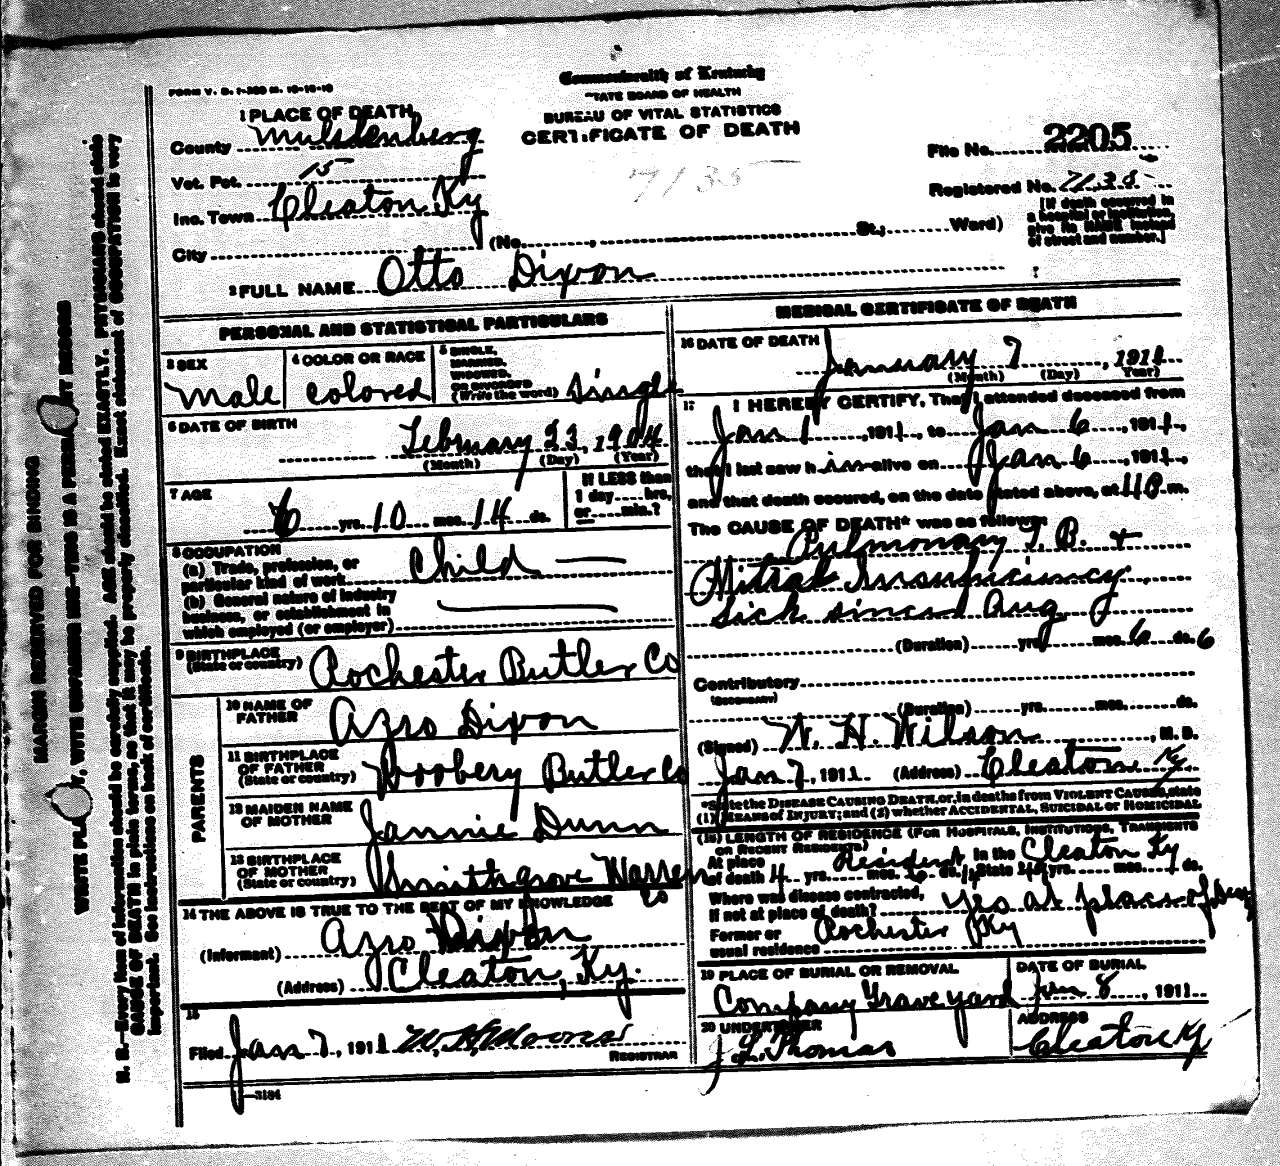 FORM V. S. 1-350 M. 10-10-10
Commonwealth of Kentucky
STATE BOARD OF HEALTH
BUREAU OF VITAL STATISTICS
CERTIFICATE OF DEATH
7135
1 PLACE OF DEATH
County Muhlenberg
Vot. Pct. 15
Inc. Town Cleaton Ky
City (No. , St.; Ward)
File No. 2205
Registered No. 7135
[If death occurred in a hospital or institution, give its NAME instead of street and number.]
2 FULL NAME Otto Dixon
PERSONAL AND STATISTICAL PARTICULARS
3 SEX
Male
4 COLOR OR RACE
Colored
5 SINGLE, MARRIED, WIDOWED, OR DIVORCED (Write the word) Single
6 DATE OF BIRTH
February 23, 1904
(Month) (Day) (Year)
7 AGE
6 yrs. 10 mos. 14 ds.
If LESS than 1 day hrs. or min.?
8 OCCUPATION
(a) Trade, profession, or particular kind of work Child
(b) General nature of industry business, or establishment in which employed (or employer)
9 BIRTHPLACE
(State or country) Rochester Butler Co
PARENTS
10 NAME OF FATHER Azro Dixon
11 BIRTHPLACE OF FATHER (State or country) Butler Co
12 MAIDEN NAME OF MOTHER Jannie Dunn
13 BIRTHPLACE OF MOTHER (State or country) Smithgrove Warren Co
14 THE ABOVE IS TRUE TO THE BEST OF MY KNOWLEDGE
(Informant) Azro Dixon
(Address) Cleaton, Ky.
15
Filed Jan 7, 1911 W. H. Moores
REGISTRAR
MEDICAL CERTIFICATE OF DEATH
16 DATE OF DEATH
January 7, 1911
(Month) (Day) (Year)
17 I HEREBY CERTIFY, That I attended deceased from
Jan 1, 1911, to Jan 6, 1911,
that I last saw him alive on Jan 6, 1911,
and that death occured, on the date stated above, at m.
The CAUSE OF DEATH* was as follows:
Pulmonary T. B. +
Mitral Insufficiency.
Sick since Aug
(Duration) yrs. mos. 6 ds. 6
Contributory
(Secondary)
(Duration) yrs. mos. ds.
(Signed) W. H. Wilson, M. D.
Jan 7, 1911 (Address) Cleaton Ky
*State the DISEASE CAUSING DEATH, or, in deaths from VIOLENT CAUSES, state (1) MEANS of INJURY; and (2) whether ACCIDENTAL, SUICIDAL or HOMICIDAL
(18) LENGTH OF RESIDENCE (FOR HOSPITALS, INSTITUTIONS, TRANSIENTS OR RECENT RESIDENTS)
At place of death 4 yrs. mos. ds. Resident In the State yrs. mos. ds. Cleaton Ky
Where was disease contracted,
If not at place of death? Yes at place of
Former or usual residence Rochester Ky
19 PLACE OF BURIAL OR REMOVAL
Company Graveyard
DATE OF BURIAL
Jan 8, 1911
20 UNDERTAKER
J. L. Thomas
ADDRESS
Cleaton Ky
—3184
MARGIN RESERVED FOR BINDING
WRITE PLAINLY, WITH UNFADING INK—THIS IS A PERMANENT RECORD
N. B.—Every item of information should be carefully supplied. AGE should be stated EXACTLY. PHYSICIANS should state
CAUSE OF DEATH in plain terms, so that it may be properly classified. Exact statement of OCCUPATION is very
important. See instructions on back of certificate.